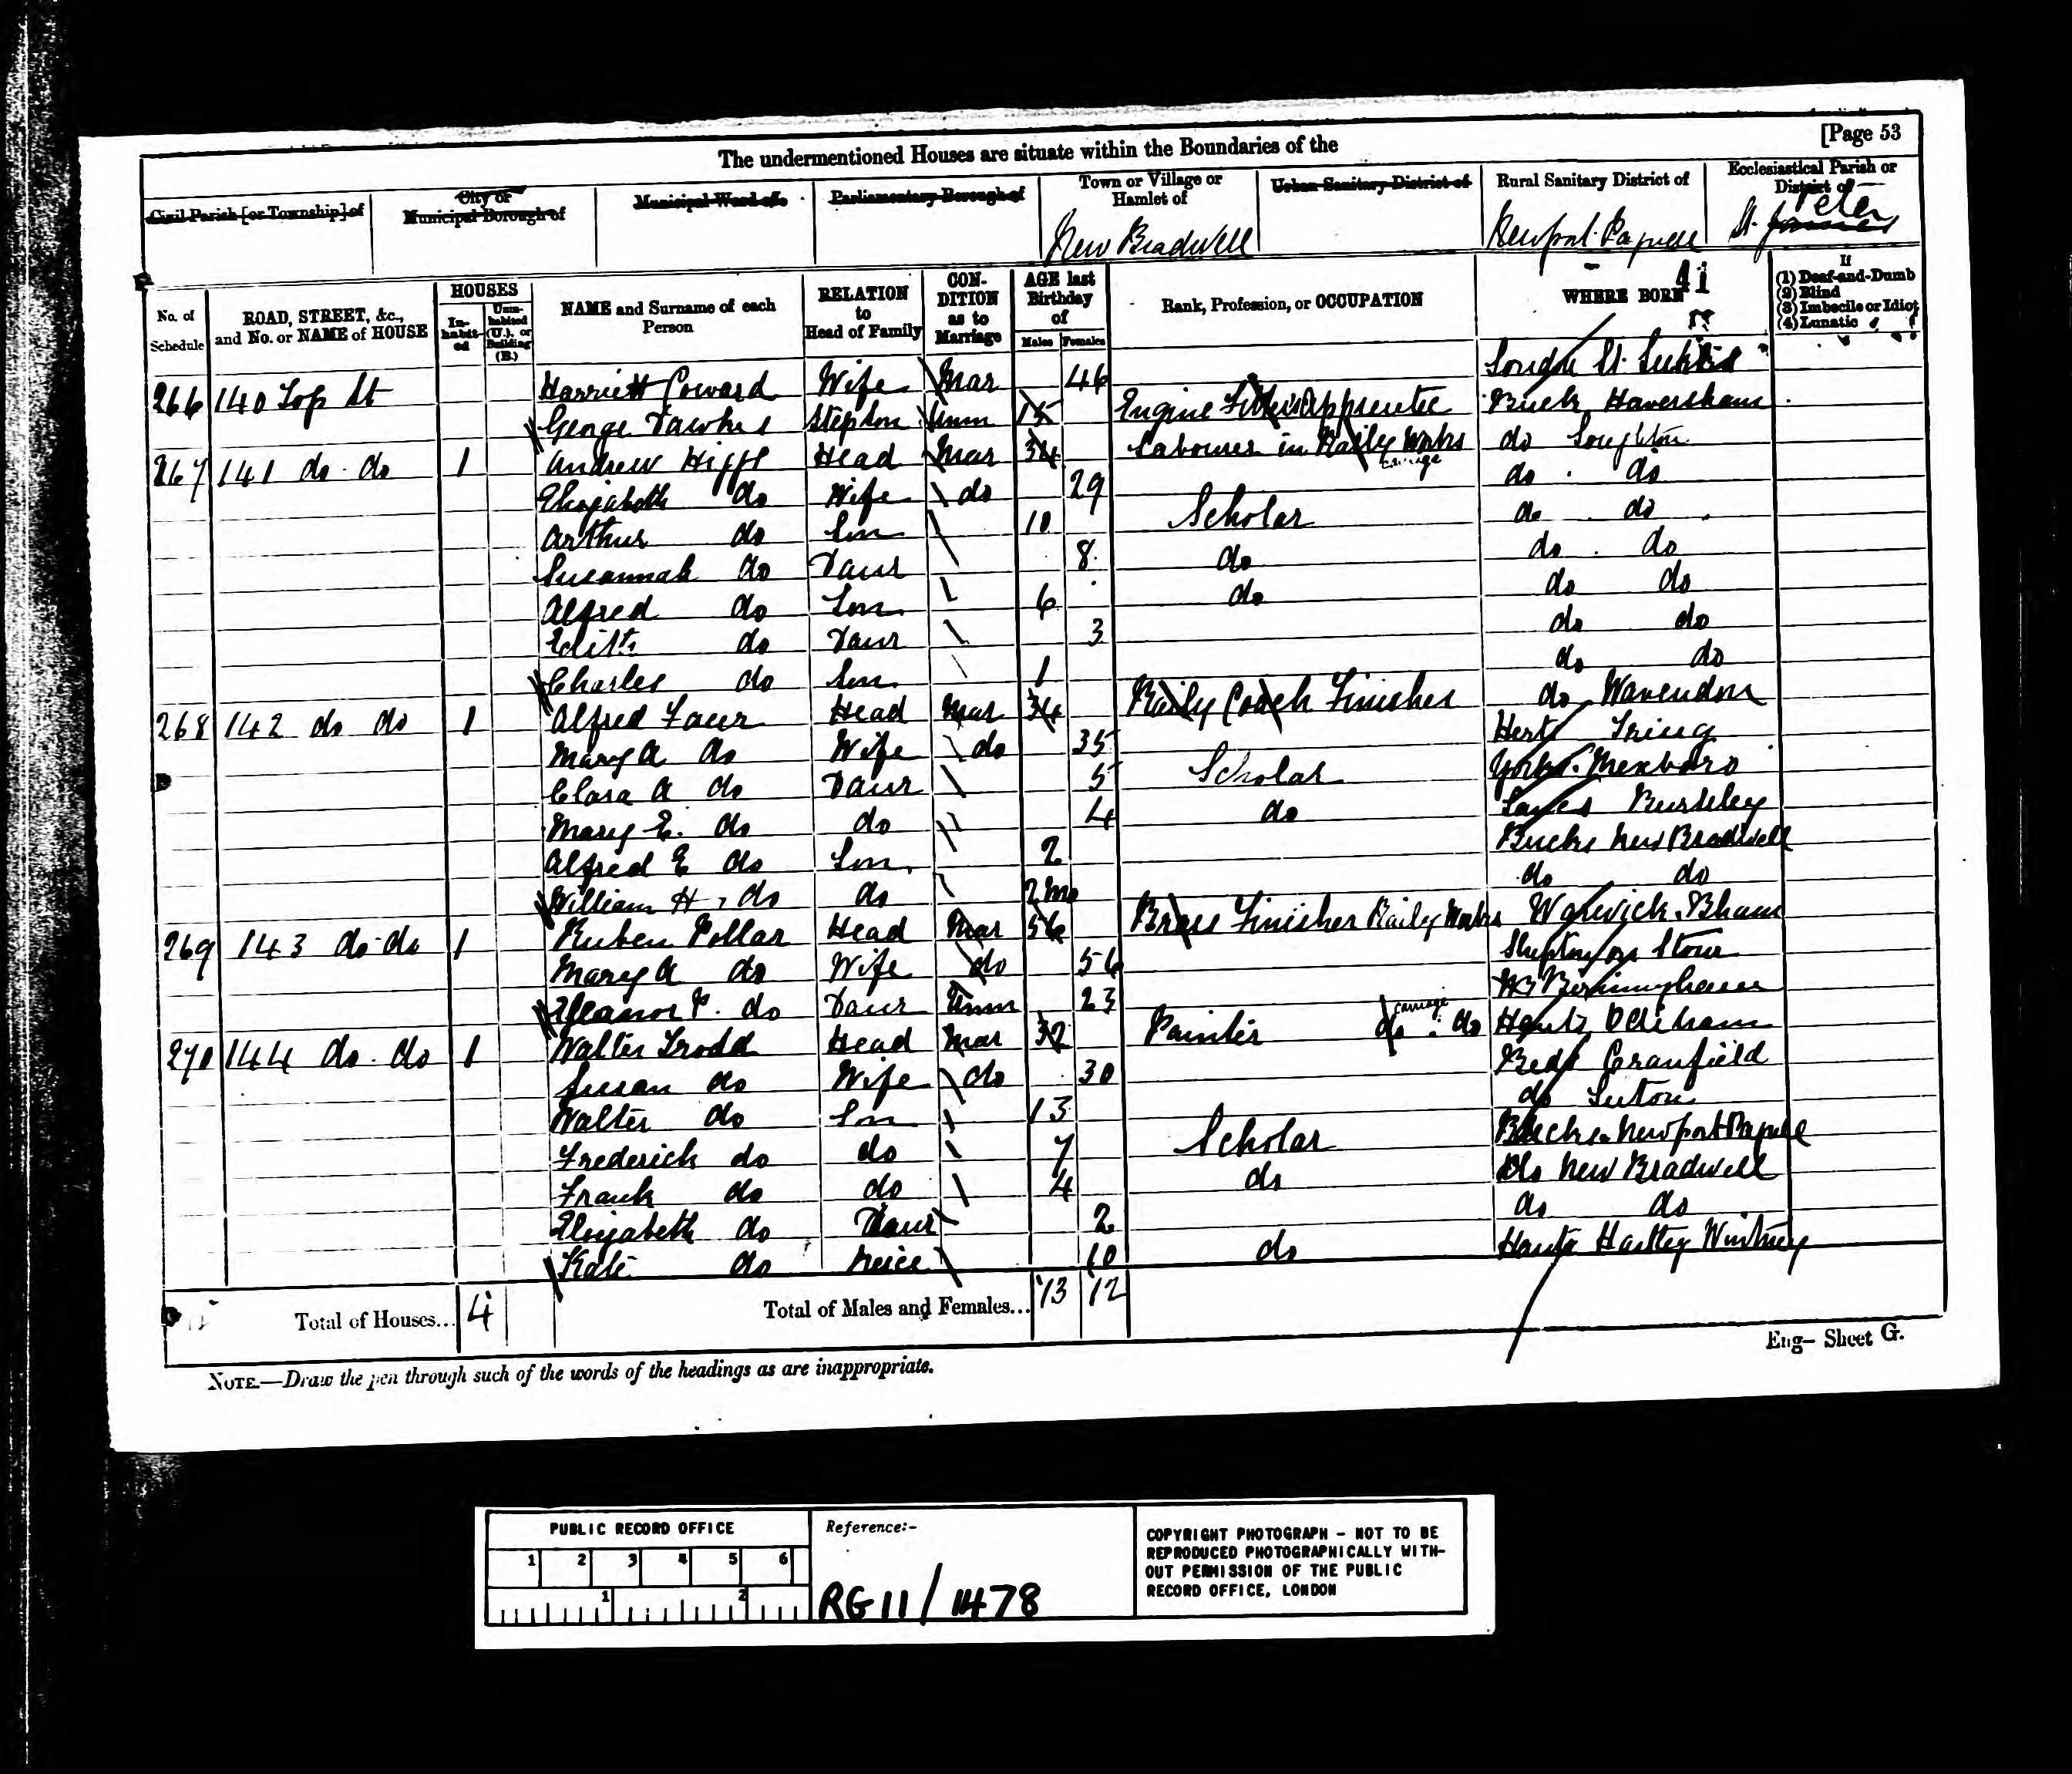 [Page 53
The undermentioned Houses are situate within the Boundaries of the
Civil Parish [or Township] of
City or Municipal Borough of
Municipal Ward of
Parliamentary Borough of
Town or Village or Hamlet of
Urban Sanitary District of
Rural Sanitary District of
Ecclesiastical Parish or District of
New Bradwell
Newport Pagnell
St. James Peter
41
No. of Schedule
ROAD, STREET, &c., and No. or NAME of HOUSE
HOUSES
In-habit-ed
Unin-habited (U.), or Building (B.)
NAME and Surname of each Person
RELATION to Head of Family
CON-DITION as to Marriage
AGE last Birthday of
Males Females
Rank, Profession, or OCCUPATION
WHERE BORN
If (1) Deaf-and-Dumb (2) Blind (3) Imbecile or Idiot (4) Lunatic
266 140 Top St Harriett Coward Wife Mar 46 London St. Lukes
George Dawkes Stepson Unm 15 Engine Fitters Apprentice Buck Haversham
267 141 do do 1 Andrew Hipps Head Mar 34 Labourer in Raily carriage Works do Loughton
Elizabeth do Wife do 29 do do
Arthur do Son 10 Scholar do do
Susannah do Daur 8 do do do
Alfred do Son 6 do do do
Edith do Daur 3 do do
Charles do Son 1 do do
268 142 do do 1 Alfred Faur Head Mar 34 Raily Coach Finisher do Wavendon
Mary A do Wife do 35 Herts Tring
Clara A do Daur 5 Scholar Yorks. Mexboro
Mary E. do do 4 do Lancs
Alfred E do Son 2 Bucks New Bradwell
William H. do do 2 mo do do
269 143 do do 1 Ruben Pollar Head Mar 56 Brass Finisher Raily Works Warwick. Bham
Mary A do Wife do 56 Shipton on Stour
Eleanor P. do Daur Unm 23 Birmingham
270 144 do do 1 Walter Trodd Head Mar 32 Painter do carriage do Hants Odiham
Susan do Wife do 30 Beds Cranfield
Walter do Son 13 do Luton
Frederick do do 7 Scholar Bucks Newport Pagnell
Frank do do 4 do Do New Bradwell
Elizabeth do Daur 2 do do
Kate do Neice 10 do Hants Hartley Wintney
Total of Houses... 4 Total of Males and Females... 13 12
Eng- Sheet G.
NOTE.—Draw the pen through such of the words of the headings as are inappropriate.
PUBLIC RECORD OFFICE
1 2 3 4 5 6
1 2
Reference:-
RG 11 / 1478
COPYRIGHT PHOTOGRAPH - NOT TO BE
REPRODUCED PHOTOGRAPHICALLY WITH-
OUT PERMISSION OF THE PUBLIC
RECORD OFFICE, LONDON